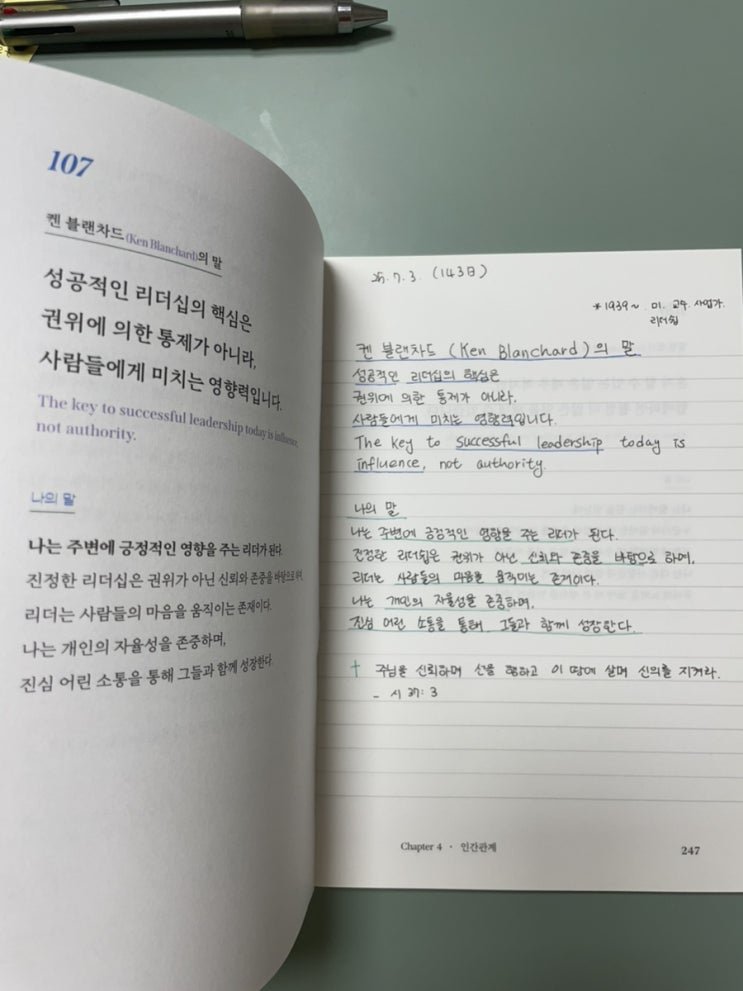 107
켄 블랜차드(Ken Blanchard)의 말
성공적인 리더십의 핵심은
권위에 의한 통제가 아니라,
사람들에게 미치는 영향력입니다.
The key to successful leadership today is influence,
not authority.
나의 말
나는 주변에 긍정적인 영향을 주는 리더가 된다.
진정한 리더십은 권위가 아닌 신뢰와 존중을 바탕으로 하며,
리더는 사람들의 마음을 움직이는 존재이다.
나는 개인의 자율성을 존중하며,
진심 어린 소통을 통해 그들과 함께 성장한다.
25. 7. 3. (143日)
*1939~ 미. 교수. 사업가.
리더쉽
켄 블랜차드 (Ken Blanchard)의 말
성공적인 리더십의 핵심은
권위에 의한 통제가 아니라.
사람들에게 미치는 영향력입니다.
The key to successful leadership today is
influence, not authority.
나의 말
나는 주변에 긍정적인 영향을 주는 리더가 된다.
진정한 리더쉽은 권위가 아닌 신뢰와 존중을 바탕으로 하며,
리더는 사람들의 마음을 움직이는 존재이다.
나는 개인의 자율성을 존중하며,
진심 어린 소통을 통해 그들과 함께 성장한다.
† 주님을 신뢰하며 선을 행하고 이 땅에 살며 신의를 지켜라.
- 시 37:3
Chapter 4 · 인간관계
247